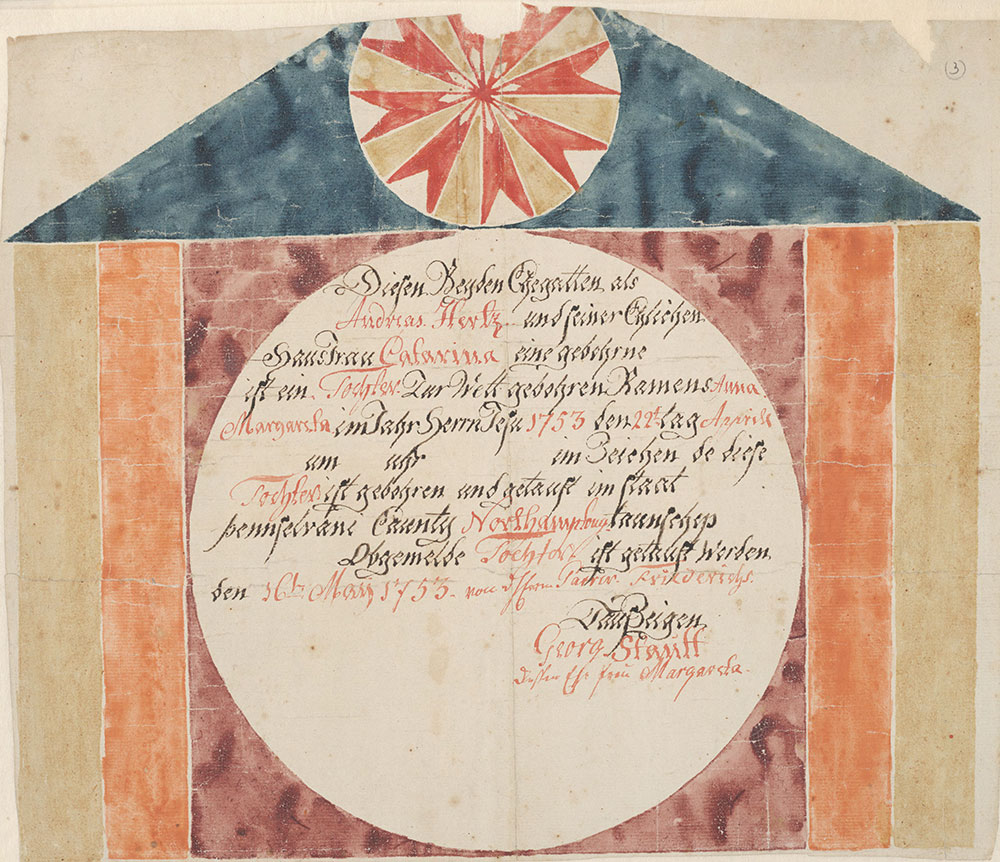 (3)
Diesen Beyden Ehegatten als
Andreas Hertz und seiner Ehlichen
Hausfrau Catarina eine gebohrne
ist ein Tochter Zur Welt gebohren Namens Anna
Margareta im Jahr Herrn Jesu 1753 den 22t tag Aprill
um uhr im Zeichen de diese
Tochter ist gebohren und getauft im staat
pennselvane Caunty Northampton taunschep
Obgemelde Tochter ist getauft Werden
den 16ten May 1753 von Herrn Friederichs
Taufzeigen
Georg Stautt
dessen Ehe frau Margareta